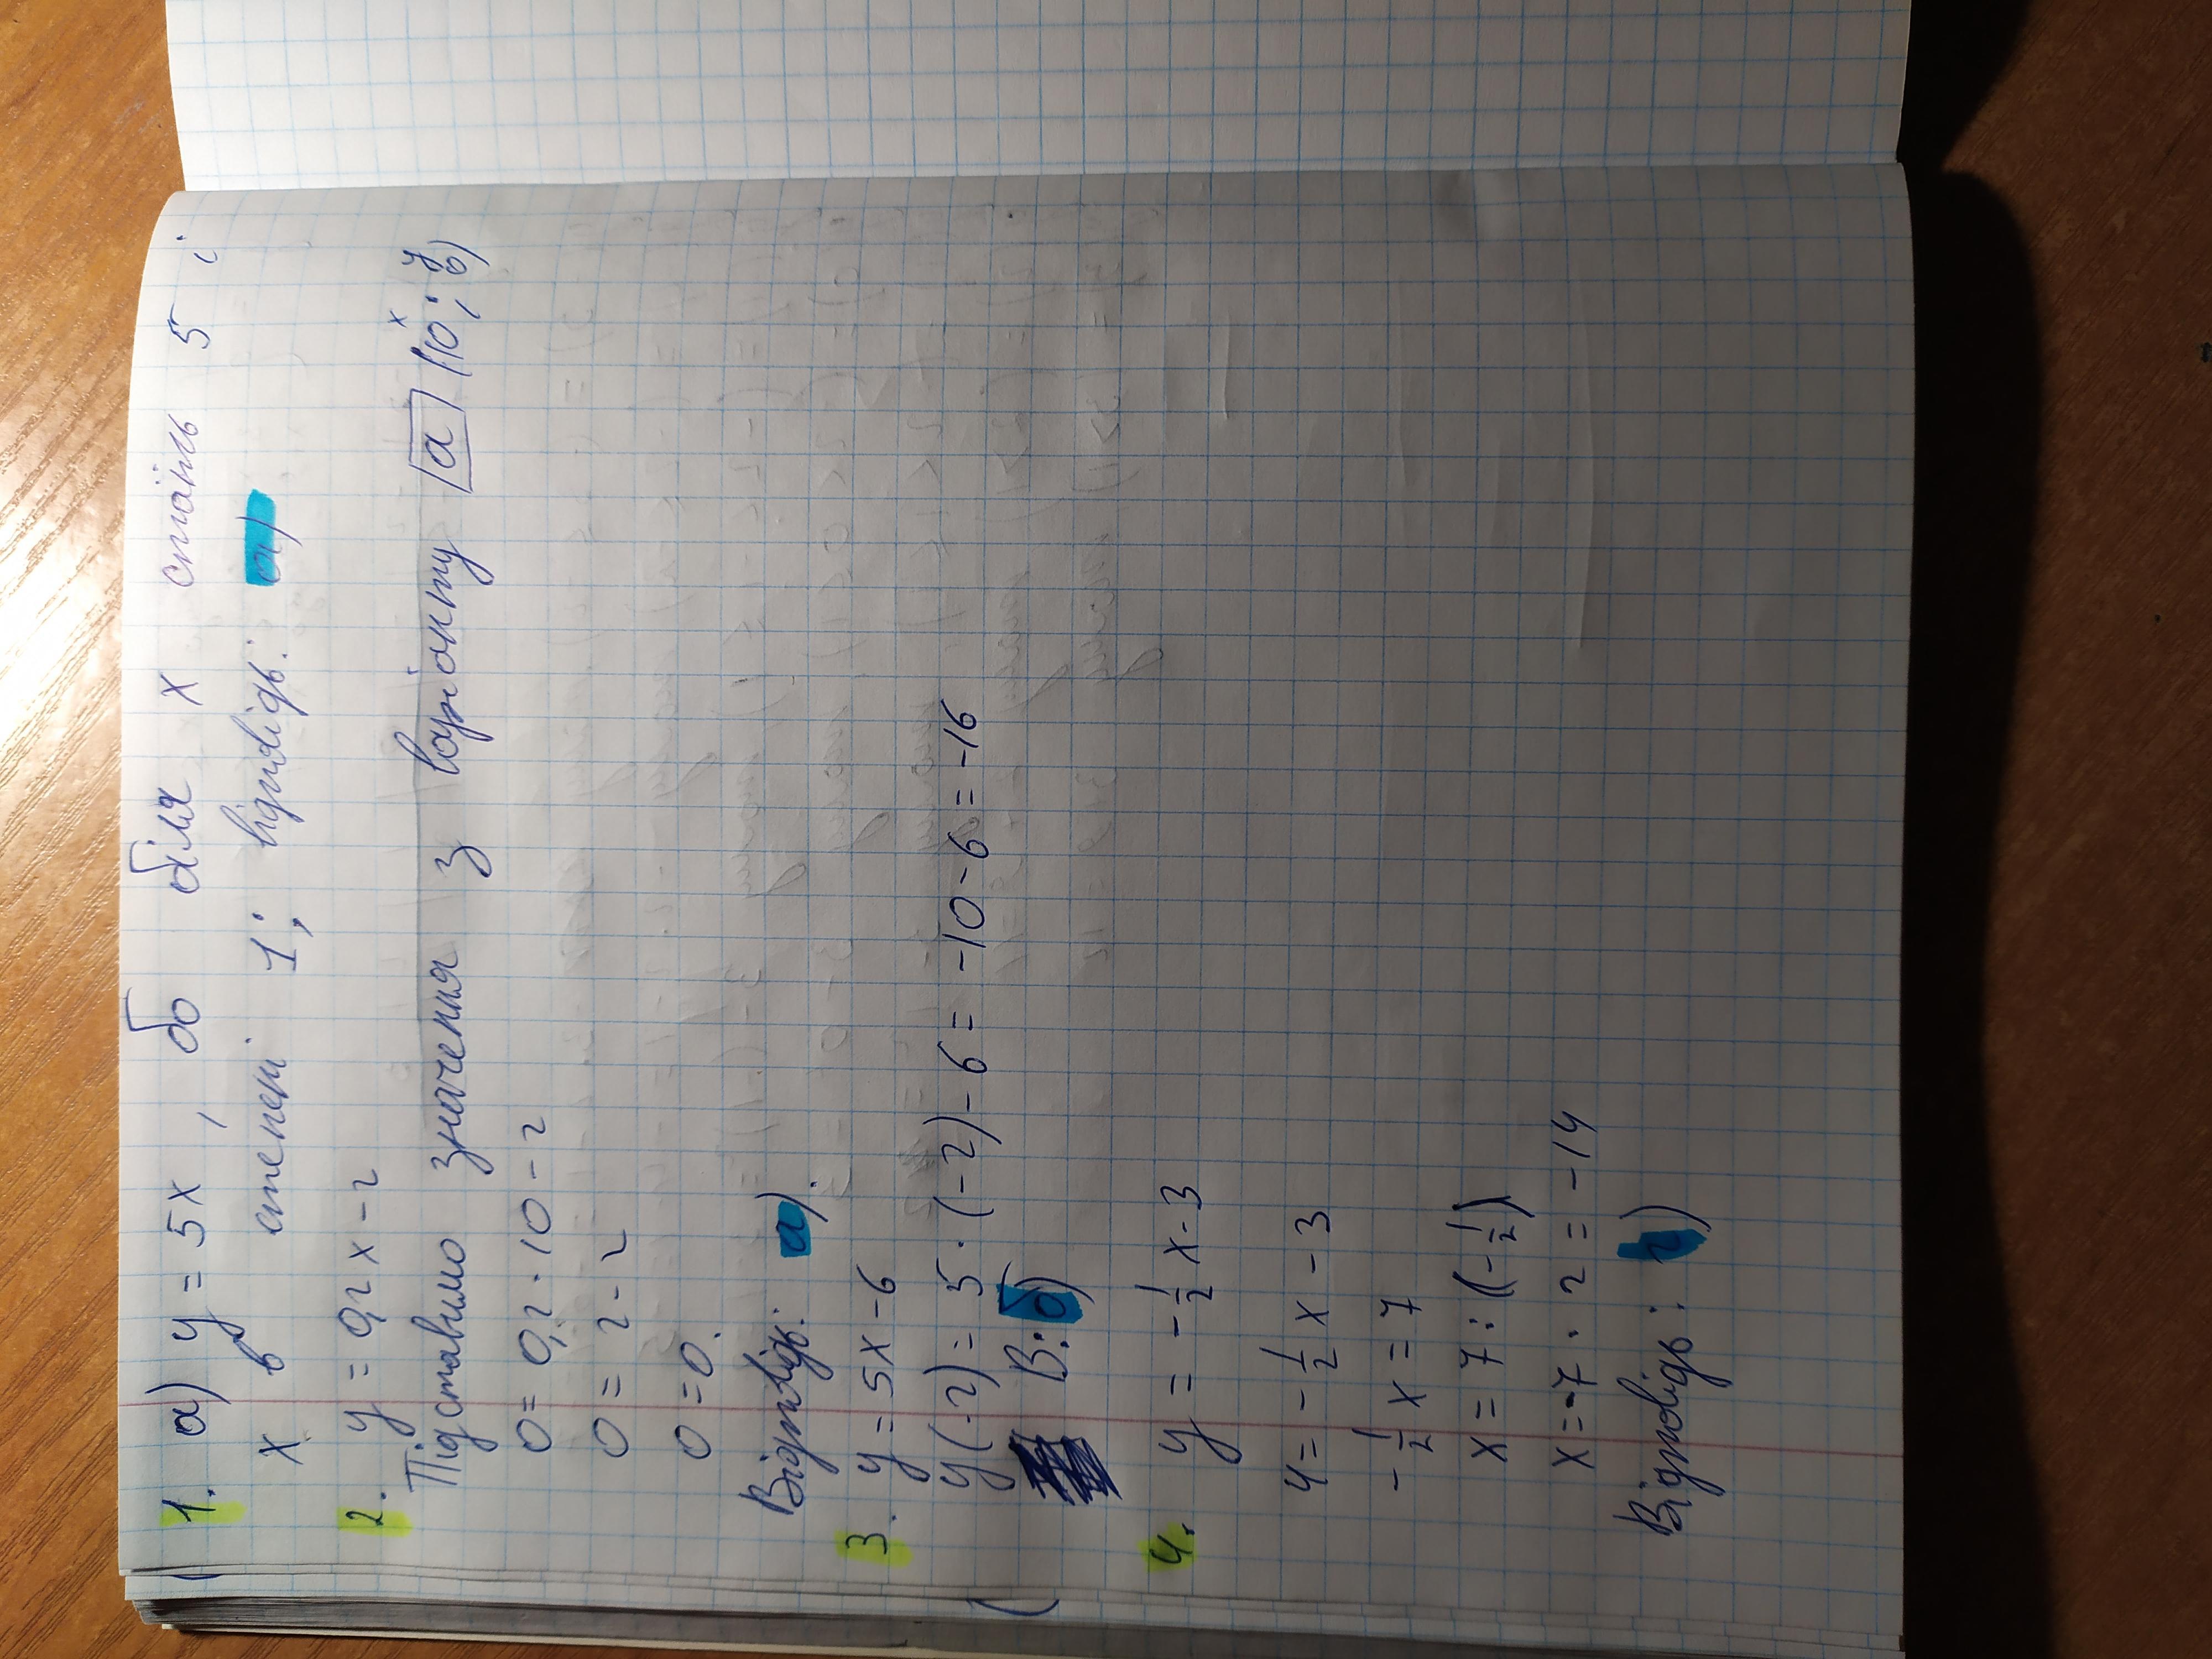 1. а) y = 5x, бо біля x стоїть 5 і
x в степені 1; відповідь: а)
2. y = 0,2x - 2
Підставимо значення з варіанту а (10; 0)
x y
0 = 0,2 · 10 - 2
0 = 2 - 2
0 = 0.
Відповідь: а).
3. y = 5x - 6
y(-2) = 5 · (-2) - 6 = -10 - 6 = -16
В: б)
4. y = - 1/2 x - 3
4 = - 1/2 x - 3
- 1/2 x = 7
x = 7 : (- 1/2)
x = -7 · 2 = -14
Відповідь: г)